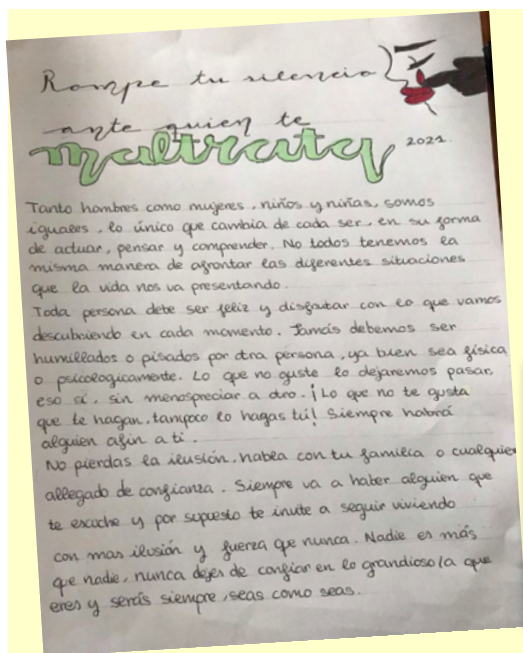 Rompe tu silencio
ante quien te
maltrata
2021.
Tanto hombres como mujeres, niños y niñas, somos
iguales, lo único que cambia de cada ser, en su forma
de actuar, pensar y comprender. No todos tenemos la
misma manera de afrontar las diferentes situaciones
que la vida nos va presentando.
Toda persona debe ser feliz y disfrutar con lo que vamos
descubriendo en cada momento. Jamás debemos ser
humillados o pisados por otra persona, ya bien sea física
o psicologicamente. Lo que no guste lo dejaremos pasar,
eso sí, sin menospreciar a otro. ¡Lo que no te gusta
que te hagan, tampoco lo hagas tú! Siempre habrá
alguien afín a ti.
No pierdas la ilusión, habla con tu familia o cualquier
allegado de confianza. Siempre va a haber alguien que
te escuche y por supuesto te invite a seguir viviendo
con mas ilusión y fuerza que nunca. Nadie es más
que nadie, nunca dejes de confiar en lo grandioso/a que
eres y serás siempre, seas como seas.